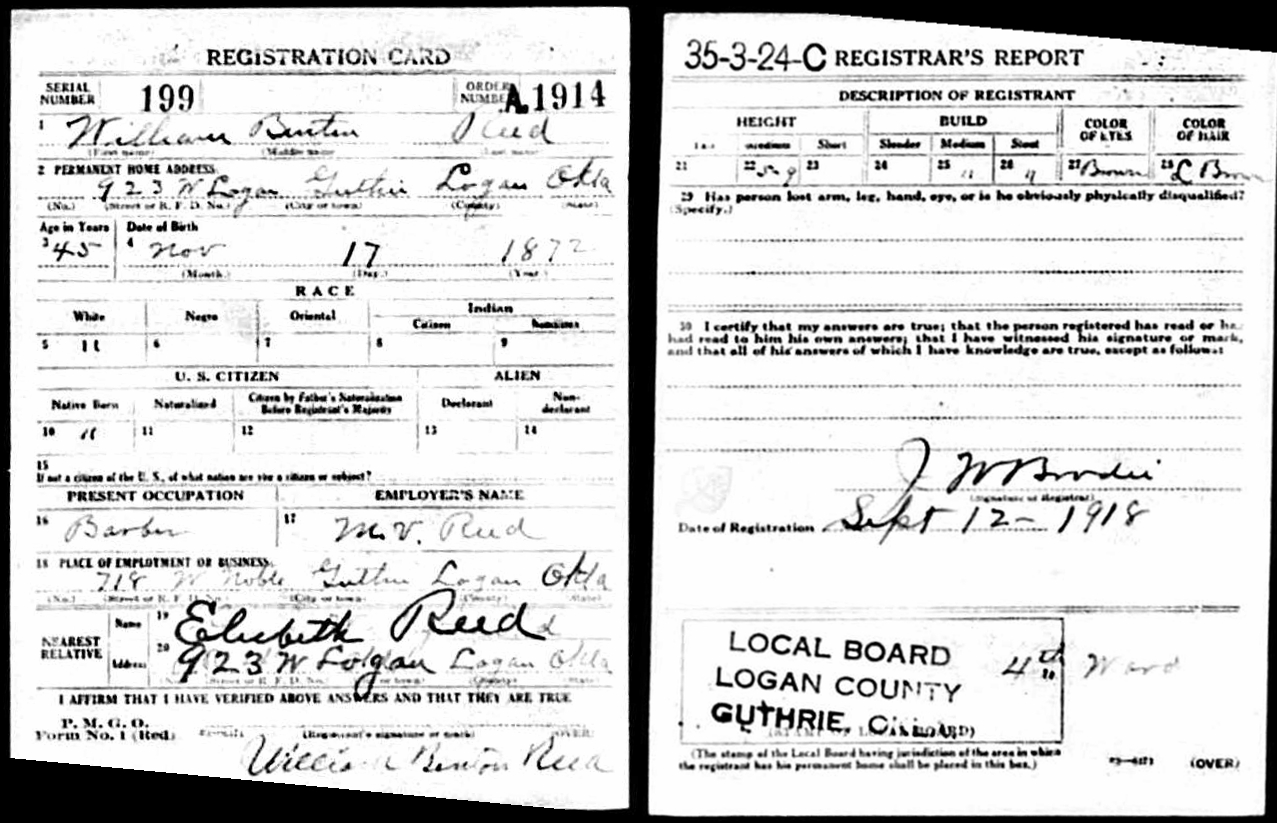 REGISTRATION CARD
SERIAL NUMBER 199 ORDER NUMBER A1914
1 William Benton Reed
(First name) (Middle name) (Last name)
2 PERMANENT HOME ADDRESS
923 W Logan Guthrie Logan Okla
(No.) (Street or R. F. D. No.) (City or town) (County) (State)
Age in Years Date of Birth
3 45 4 Nov 17 1872
(Month.) (Day.) (Year.)
RACE
White Negro Oriental Indian
Citizen Noncitizen
5 11 6 7 8 9
U. S. CITIZEN ALIEN
Native Born Naturalized Citizen by Father's Naturalization Before Registrant's Majority Declarant Non-declarant
10 11 11 12 13 14
15
If not a citizen of the U. S., of what nation are you a citizen or subject?
PRESENT OCCUPATION EMPLOYER'S NAME
16 Barber 17 M. V. Reed
18 PLACE OF EMPLOYMENT OR BUSINESS
718 W Noble Guthrie Logan Okla
(No.) (Street or R. F. D. No.) (City or town) (County) (State)
NEAREST RELATIVE
Name 19 Elisibeth Reed
Address 20 923 W Logan Logan Okla
(Street or R. F. D. No.) (City or town) (County) (State)
I AFFIRM THAT I HAVE VERIFIED ABOVE ANSWERS AND THAT THEY ARE TRUE
P. M. G. O.
Form No. 1 (Red) (Registrant's signature or mark) (OVER)
William Benton Reed
35-3-24-C REGISTRAR'S REPORT
DESCRIPTION OF REGISTRANT
HEIGHT BUILD COLOR OF EYES COLOR OF HAIR
Tall Medium Short Slender Medium Stout
21 22 5-9 23 24 25 11 26 27 Brown 28 L Brown
29 Has person lost arm, leg, hand, eye, or is he obviously physically disqualified?
(Specify.)
30 I certify that my answers are true; that the person registered has read or has
had read to him his own answers; that I have witnessed his signature or mark,
and that all of his answers of which I have knowledge are true, except as follows:
J W Brodie
(Signature of Registrar)
Date of Registration Sept 12 - 1918
LOCAL BOARD
LOGAN COUNTY
GUTHRIE, OKLA.
4th Ward
(STAMP OF LOCAL BOARD)
(The stamp of the Local Board having jurisdiction of the area in which
the registrant has his permanent home shall be placed in this box.)
(OVER)